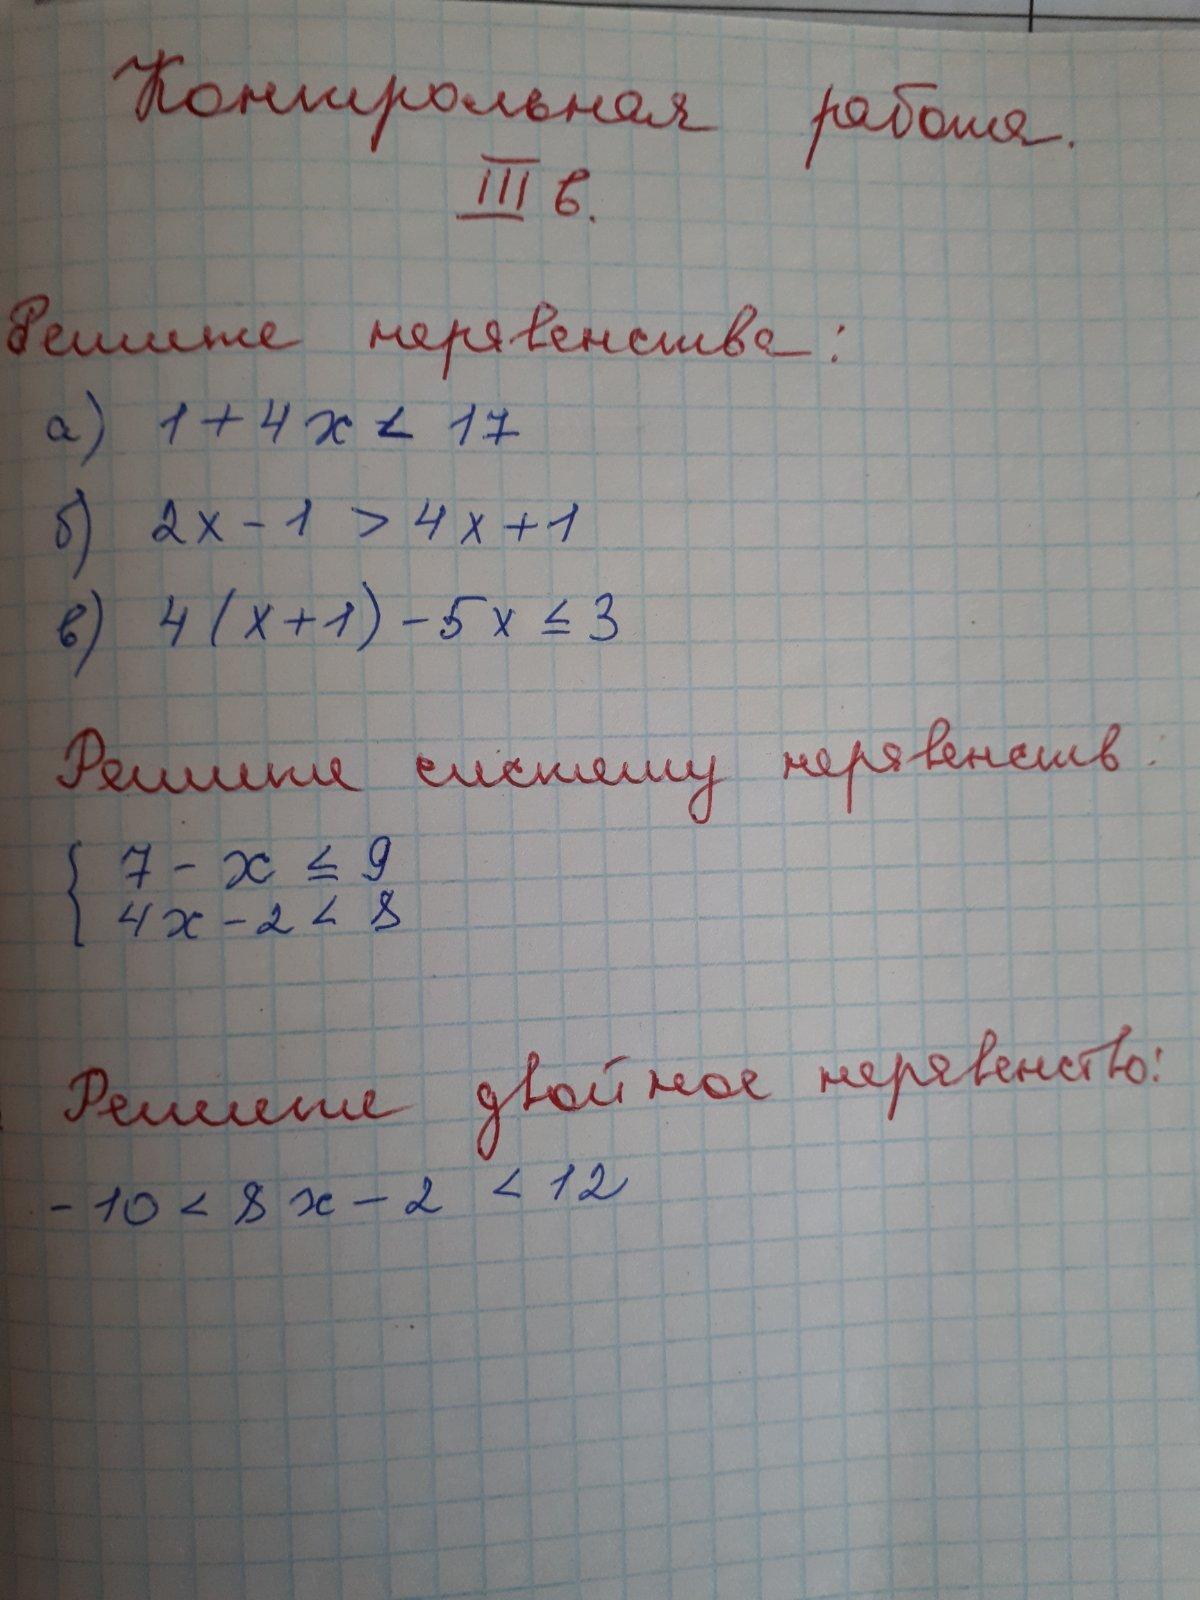 Контрольная работа.
III в.
Решите неравенства:
а) 1 + 4x < 17
б) 2x - 1 > 4x + 1
в) 4(x+1) - 5x ≤ 3
Решите систему неравенств.
{ 7 - x ≤ 9
4x - 2 < 8
Решите двойное неравенство:
-10 < 8x - 2 < 12